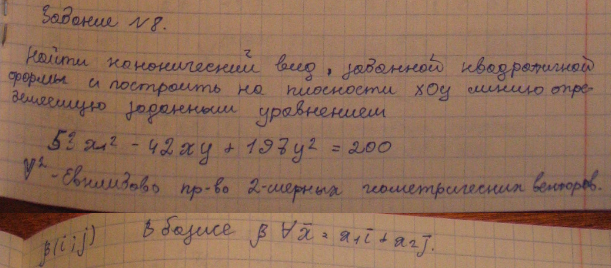 Задание №8.
Найти канонический вид, заданной квадратичной
формы и построить на плоскости xOy линию опре-
деляемую заданным уравнением
53x² - 42xy + 197y² = 200
V² - Евклидово пр-во 2-мерных геометрических векторов.
β(i; j) В базисе β ∀x̄ = x₁ī + x₂j̄.